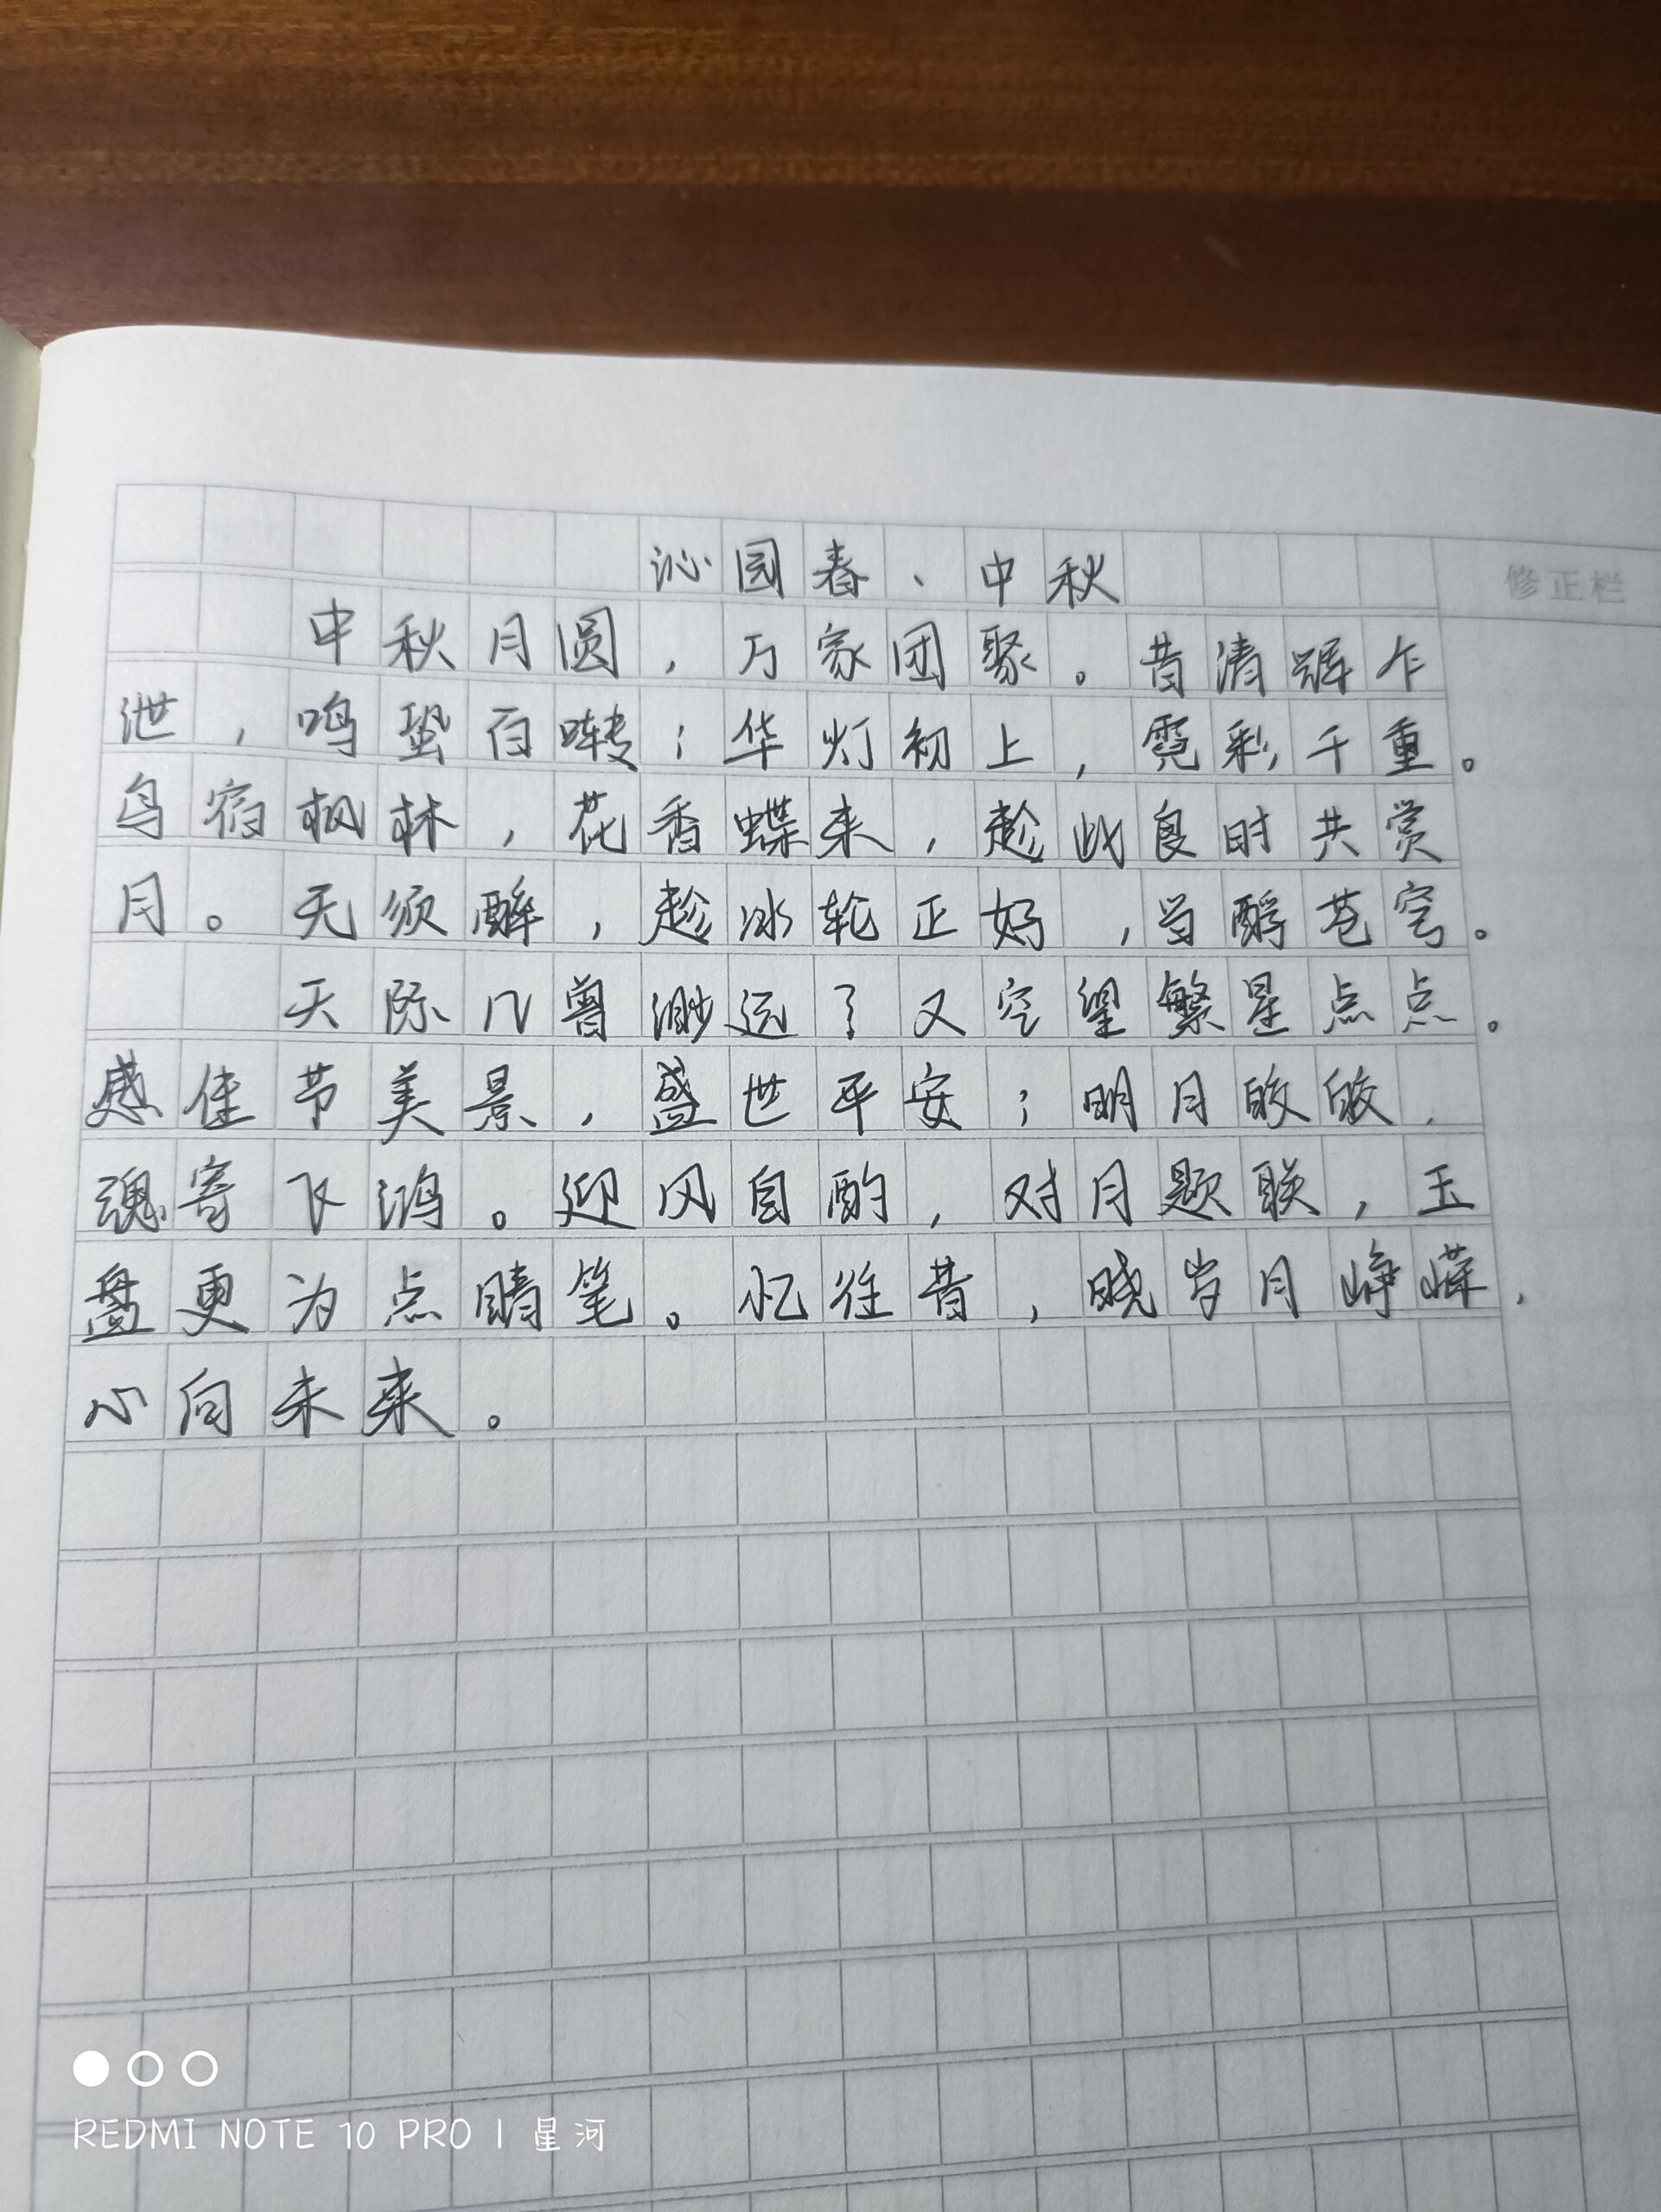 沁园春、中秋
修正栏
中秋月圆，万家团聚。昔清辉乍
泄，鸣蛩百啭；华灯初上，霓彩千重。
鸟宿枫林，花香蝶来，趁此良时共赏
月。无须醉，趁冰轮正好，当酹苍穹。
天际几曾渺远？又空望繁星点点。
感佳节美景，盛世平安；明月皎皎，
魂寄飞鸿。迎风自酌，对月题联，玉
盘更为点睛笔。忆往昔，晓岁月峥嵘，
心向未来。
REDMI NOTE 10 PRO | 星河